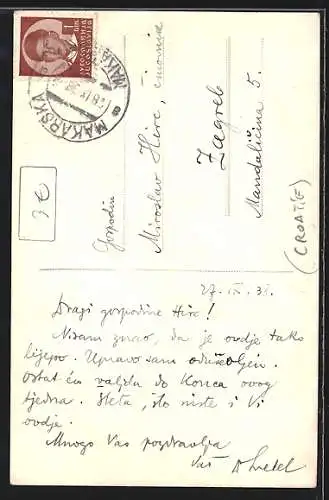 1
MAKARSKA
3 €
Gospodin
Miroslav Hirc, činovnik
Zagreb
Mandaličina 5.
(CROATIE)
27. IX. 38.
Dragi gospodine Hirc!
Nisam znao, da je ovdje tako
lijepo. Upravo sam oduševljen.
Ostat ću valjda do konca ovog
tjedna. Šteta, što niste i Vi
ovdje.
Mnogo Vas pozdravlja
Vaš